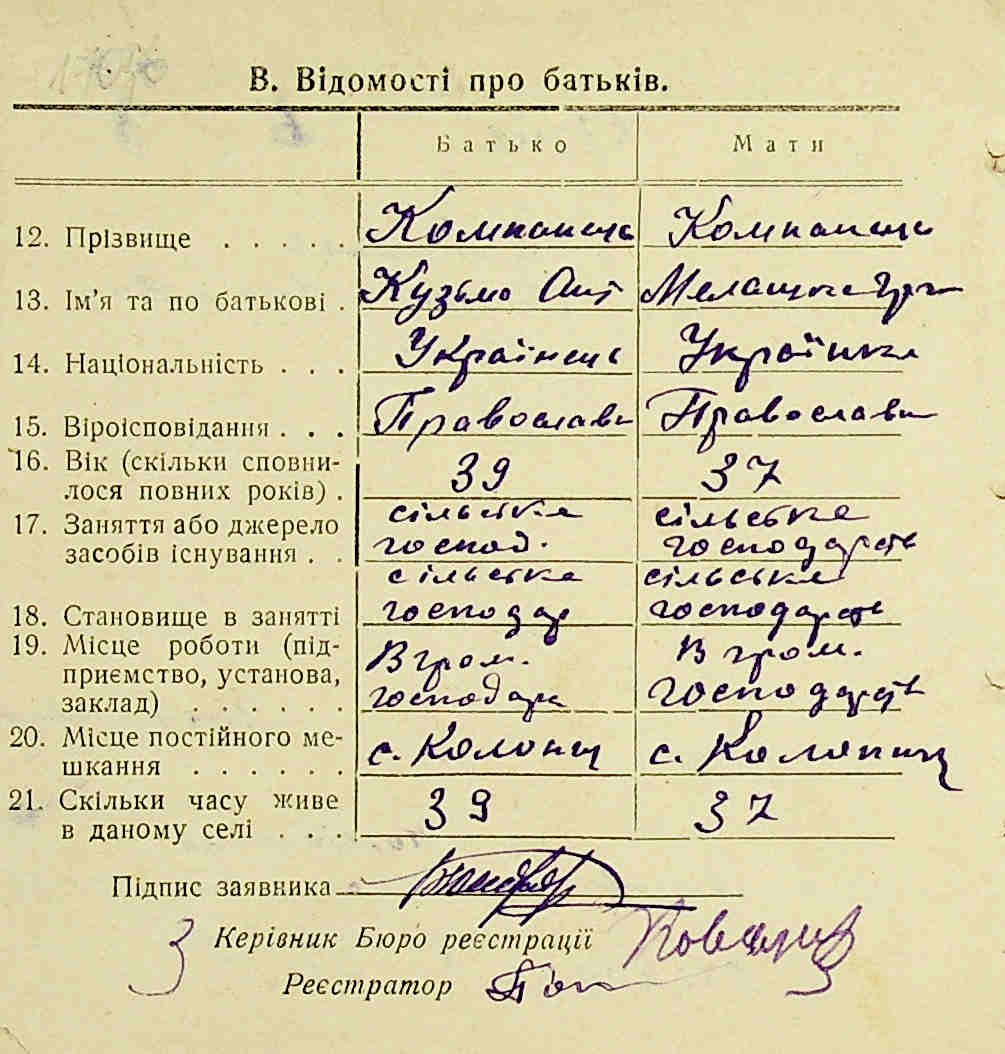 В. Відомості про батьків.
Батько Мати
12. Прізвище . . . . . Компанець Компанець
13. Ім'я та по батькові . Кузьма Ант Мелашка Гри
14. Національність . . . Українець Українка
15. Віроісповідання . . . Православн Православн
16. Вік (скільки сповни-
лося повних років) . 39 37
17. Заняття або джерело сільське сільське
засобів існування . . господ. господарств
сільське сільське
18. Становище в занятті господар господарств
19. Місце роботи (під- В гром. В гром.
приємство, установа,
заклад) . . . . . . господар господарств
20. Місце постійного ме- с. с.
шкання . . . . . .
21. Скільки часу живе 39 37
в даному селі . . .
Підпис заявника
Керівник Бюро реєстрації
Реєстратор